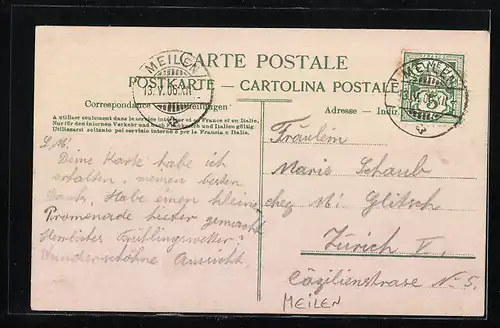 CARTE POSTALE
POSTKARTE — CARTOLINA POSTALE
Correspondance
Adresse —
A utiliser seulement dans le service interieur et en France et Italie.
Nur für den internen Verkehr und nach Frankreich und Italien gültig.
Utilizzarsi soltanto pel servizio interno e per la Francia e Italia.
MEILEN
MEILEN
5
L. M!
Deine Karte habe ich
erhalten, meinen besten
Dank. Habe einen kleine
Promenade hieher gemacht
Herrliches Frühlingswetter!
Wunderschöne Aussicht.
Fräulein
Marie Schaub
chez M! Glitsch
Zürich V.
Cäzilienstrase No 5.
MEILEN